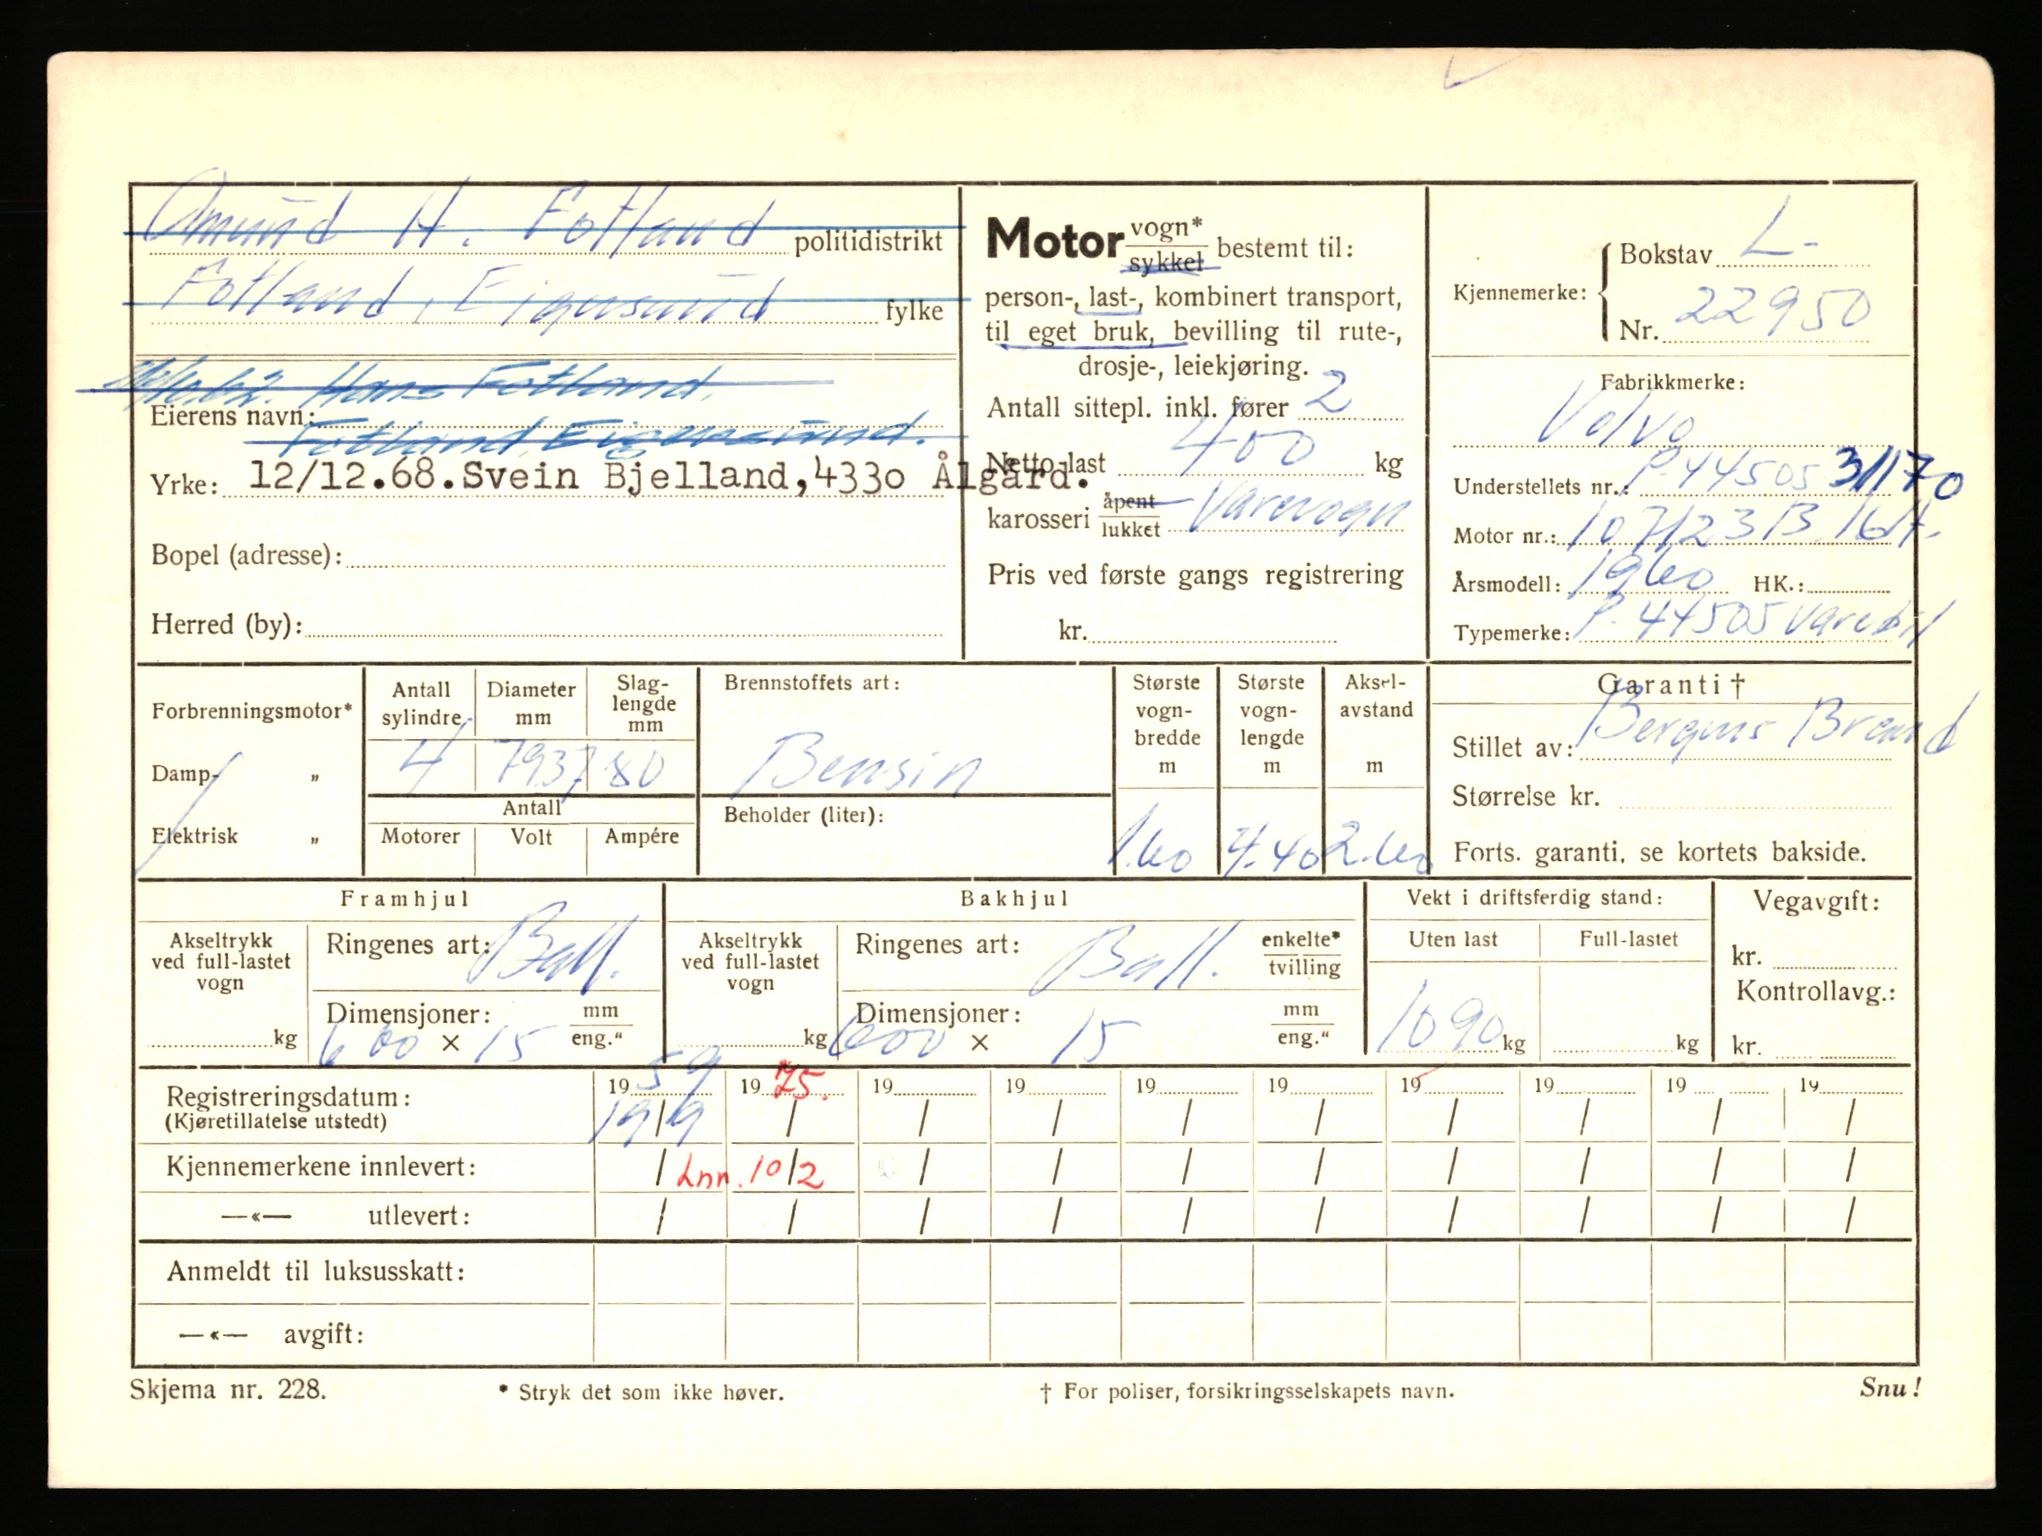 Amund H. Fotland politidistrikt
Fotland, Eigersund fylke
Hans Fotland.
Eierens navn:
Fotland, Eigersund.
Yrke: 12/12.68.Svein Bjelland,4330 Ålgård.
Bopel (adresse):
Herred (by):
Motor vogn* sykkel bestemt til:
person-, last-, kombinert transport,
til eget bruk, bevilling til rute-,
drosje-, leiekjøring.
Antall sittepl. inkl. fører 2
Netto last 400 kg
karosseri åpent lukket Varevogn
Pris ved første gangs registrering
kr.
Kjennemerke: Bokstav L-
Nr. 22950
Fabrikkmerke:
Volvo
Understellets nr.: P44505 31170
Motor nr.: 107123 B 16 A.
Årsmodell: 1960 HK.:
Typemerke: P. 44505 varebil
Forbrenningsmotor*
Damp- „
Elektrisk „
Antall sylindre 4
Diameter mm 79.37
Slag-lengde mm 80
Antall
Motorer Volt Ampére
Brennstoffets art:
Bensin
Beholder (liter):
Største vogn-bredde m 1.60
Største vogn-lengde m 4.40
Aksel-avstand m 2.60
Garanti †
Stillet av: Bergens Brand
Størrelse kr.
Forts. garanti, se kortets bakside.
Framhjul
Akseltrykk ved full-lastet vogn kg
Ringenes art: Ball.
Dimensjoner: mm eng."
600 × 15
Bakhjul
Akseltrykk ved full-lastet vogn kg
Ringenes art: Ball. enkelte* tvilling
Dimensjoner: mm eng."
600 × 15
Vekt i driftsferdig stand:
Uten last Full-lastet
1090 kg kg
Vegavgift:
kr.
Kontrollavg.:
kr.
Registreringsdatum: 19 59 19 75. 19 19 19 19 19 19 19 19
(Kjøretillatelse utstedt) 19/9 / / / / / / / / /
Kjennemerkene innlevert: / Inn. 10/2 / / / / / / / /
—«— utlevert: / / / / / / / / / /
Anmeldt til luksusskatt:
—«— avgift:
Skjema nr. 228.
* Stryk det som ikke høver.
† For poliser, forsikringsselskapets navn.
Snu!